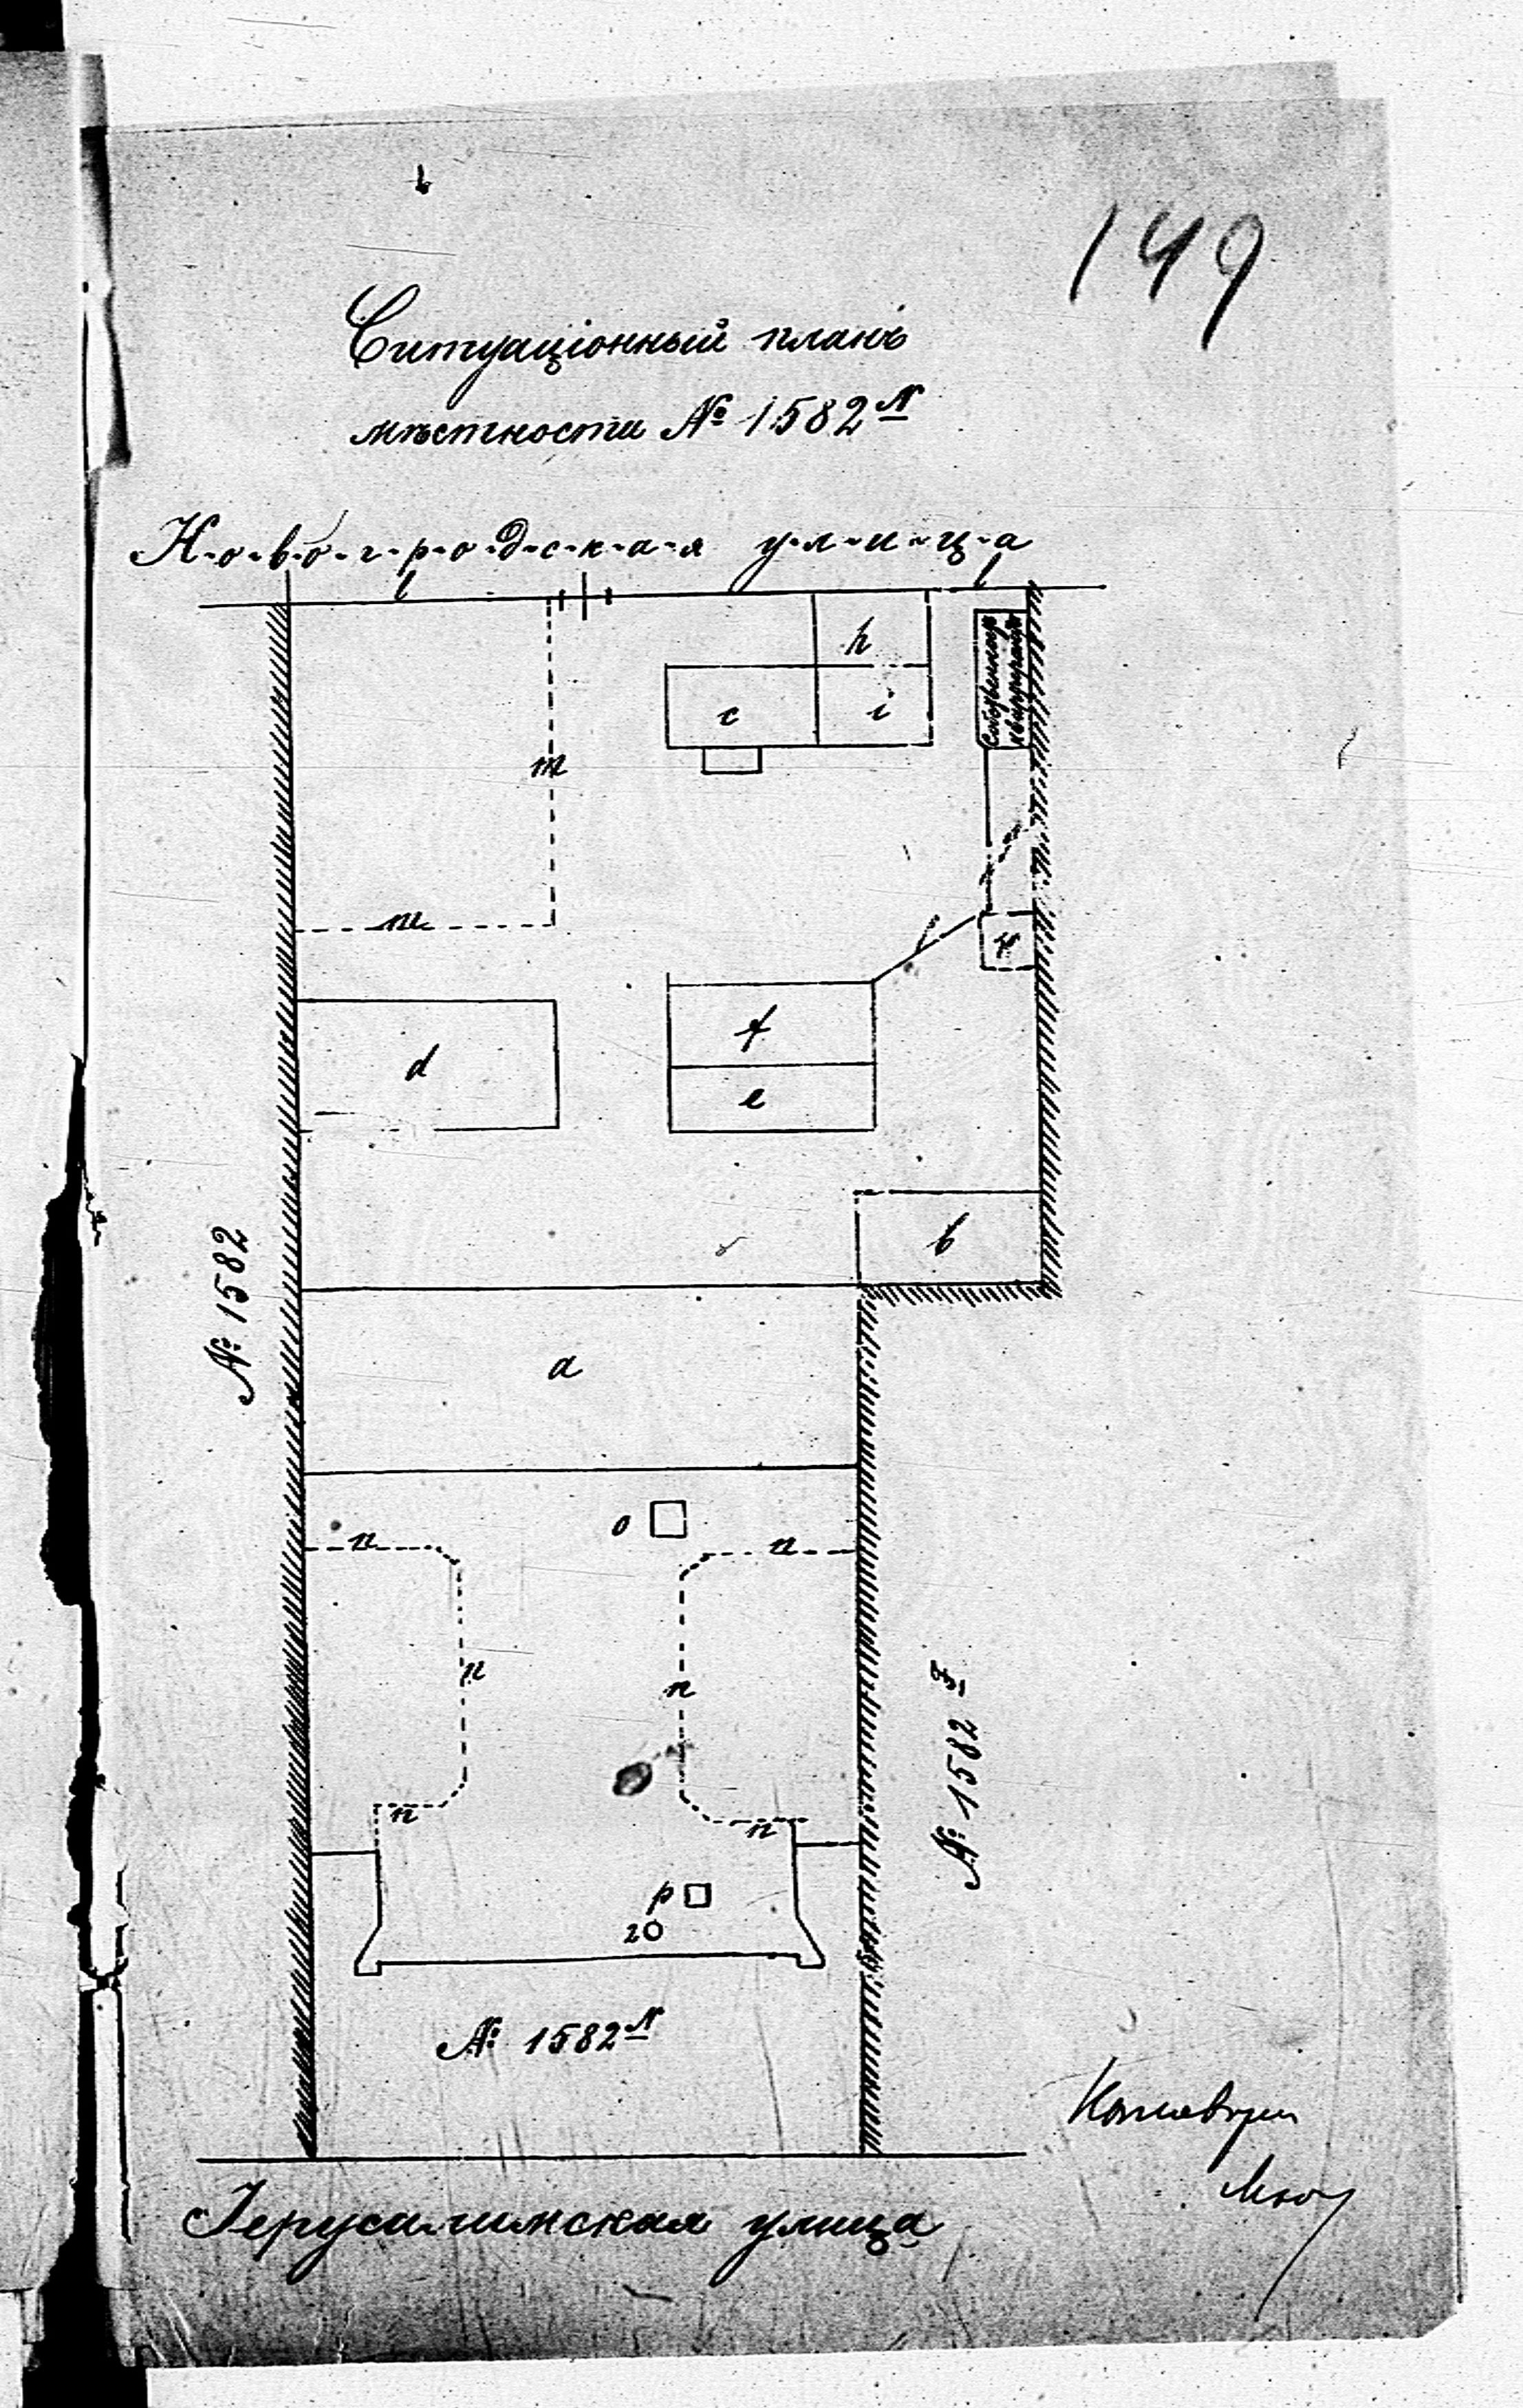 149
Ситуаціонный планъ
мѣстности № 1582 N
Новогродская улица
h
c
i
m
m
d
f
e
b
№ 1582
a
o
n
n
n
n
n
n
№ 1582 F
p
2
№ 1582 N
Іерусалимская улица